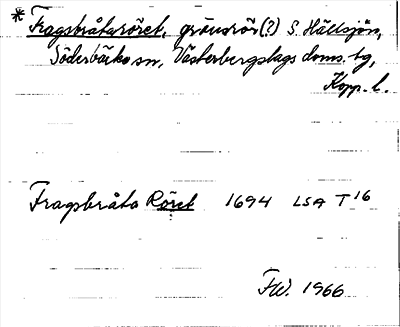 * Fragsbråtaröret, gränsrör(?) S. Hällsjön,
Söderbärke sn, Västerbergslags doms.-tg,
Kopp. l.
Fragsbråta Röret 1694 LSA T 16
F.W. 1966